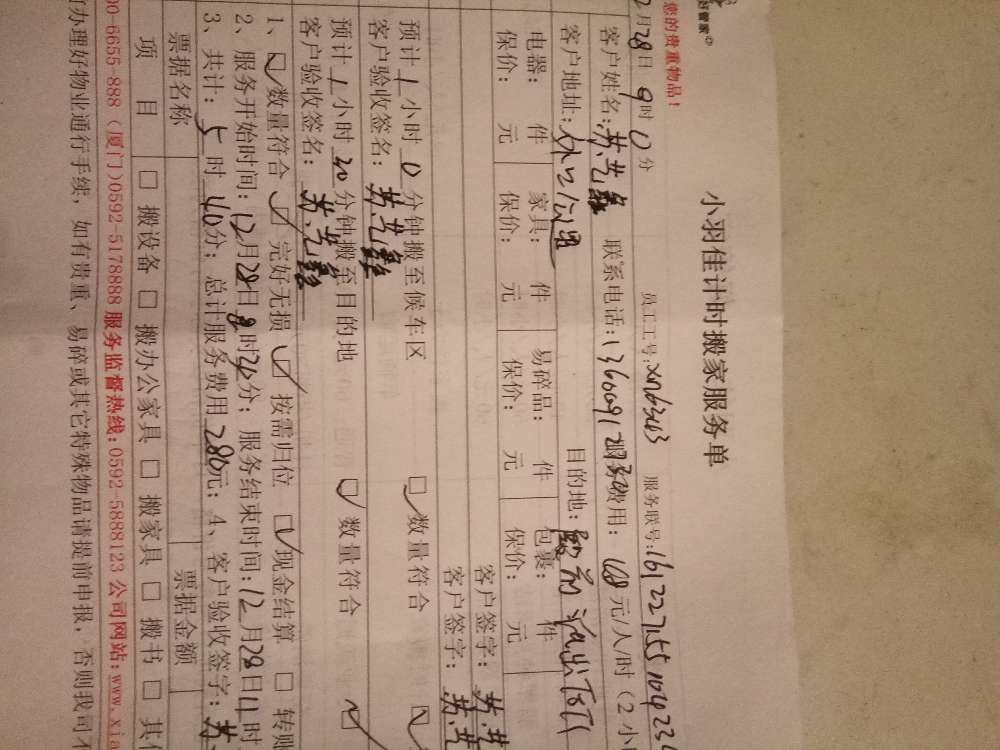 好管家
小羽佳计时搬家服务单
您的贵重物品!
员工工号: 服务联号:
2月28日9时0分
客户姓名: 联系电话: 费用:68元/人/时(2小
客户地址: 目的地:
电器: 件 家具: 件 易碎品: 件 包裹: 件
保价: 元 保价: 元 保价: 元 保价: 元
客户签字:
客户签字:
预计1小时0分钟搬至候车区 数量符合
客户验收签名:
预计1小时20分钟搬至目的地 数量符合
客户验收签名:
1、 数量符合 完好无损 按需归位 现金结算 转账
2、服务开始时间:12月28日 时 分; 服务结束时间:12月28日11时
3、共计:5时40分; 总计服务费用280元; 4、客户验收签字:
票据名称 票据金额
项 目 搬设备 搬办公家具 搬家具 搬书 其
00-6655-888(厦门)0592-5178888 服务监督热线:0592-5888123 公司网站:www.xia
办理好物业通行手续,如有贵重、易碎或其它特殊物品请提前申报,否则我司不